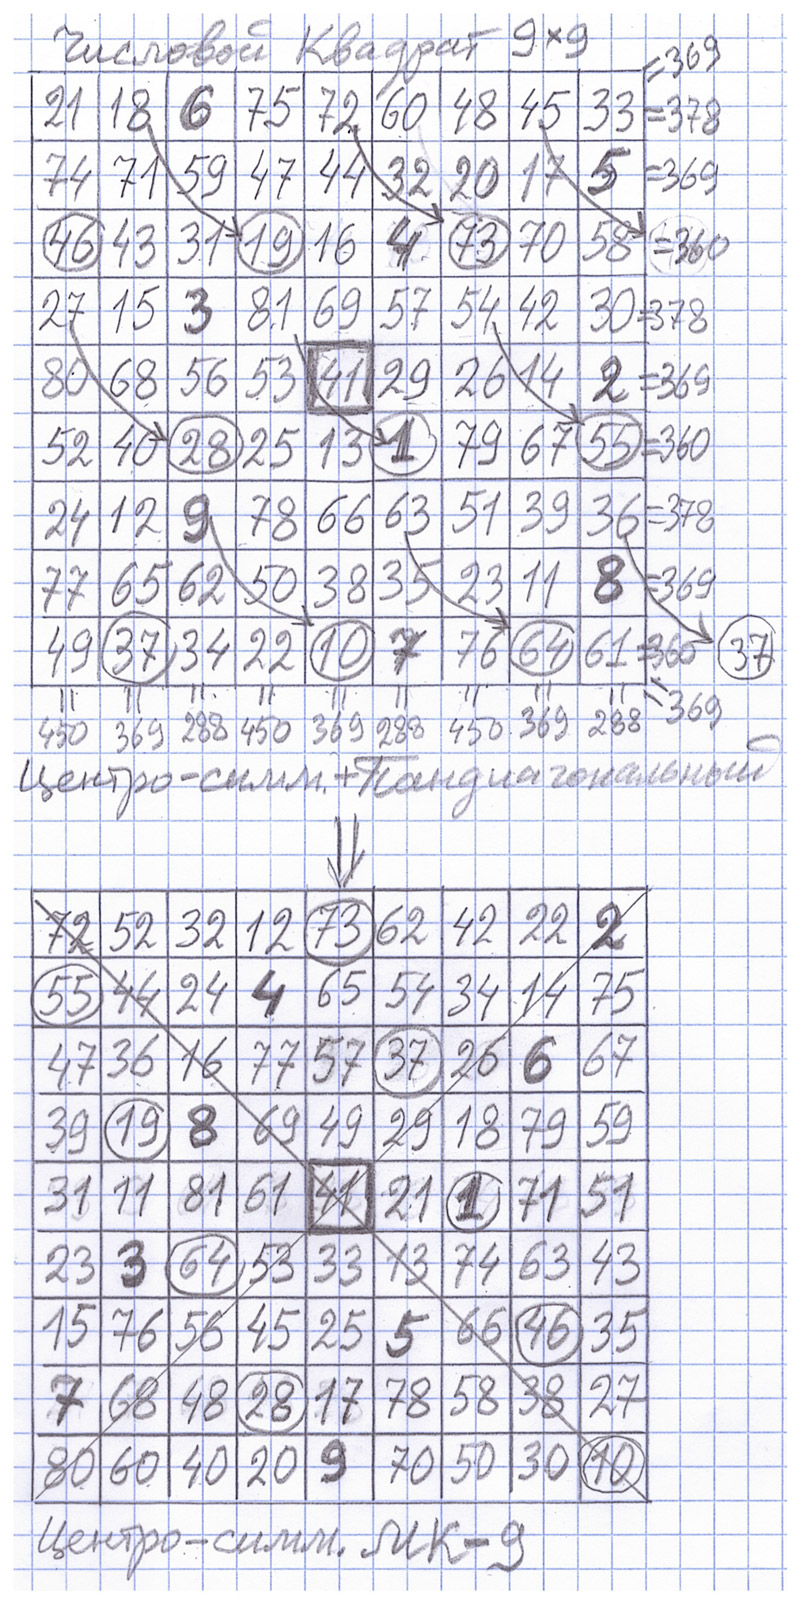 Числовой Квадрат 9×9
=369
21 18 6 75 72 60 48 45 33 =378
74 71 59 47 44 32 20 17 5 =369
46 43 31 19 16 4 73 70 58 =360
27 15 3 81 69 57 54 42 30 =378
80 68 56 53 41 29 26 14 2 =369
52 40 28 25 13 1 79 67 55 =360
24 12 9 78 66 63 51 39 36 =378
77 65 62 50 38 35 23 11 8 =369
49 37 34 22 10 7 76 64 61 =360 37
=369
450 369 288 450 369 288 450 369 288
Центро-симм.+Пандиагональный
72 52 32 12 73 62 42 22 2
55 44 24 4 65 54 34 14 75
47 36 16 77 57 37 26 6 67
39 19 8 69 49 29 18 79 59
31 11 81 61 41 21 1 71 51
23 3 64 53 33 13 74 63 43
15 76 56 45 25 5 66 46 35
7 68 48 28 17 78 58 38 27
80 60 40 20 9 70 50 30 10
Центро-симм. МК-9